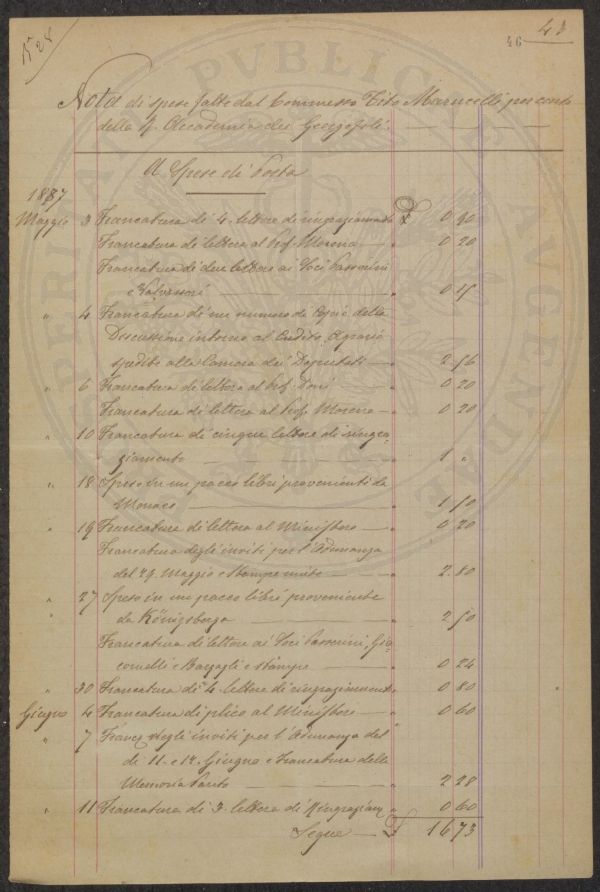 N° 28
46 43
Nota di spese fatte dal Commesso Tito Marucelli per conto
della R. Accademia dei Georgofili.
A Spese di Posta
1887
Maggio 3 Francatura di 4 lettere di ringraziamento £ 0 80
Francatura di lettera al Prof. Morena — " 0 20
Francatura di due lettere ai Soci Passerini
e Valvassori — " 0 15
" 4 Francatura di un numero di Copie della
Discussione intorno al Credito Agrario
spedite alla Camera dei Deputati — " 2 56
" 6 Francatura di lettera al Prof. Doni " 0 20
Francatura di lettera al Prof. Morena — " 0 20
" 10 Francatura di cinque lettere di ringra
ziamento — " 1 "
" 18 Spese in un pacco libri proveniente da
Monaco — " 1 50
" 19 Francatura di lettera al Ministero — " 0 20
Francatura degli inviti per l'Adunanza
del 29 Maggio e stampe unite — " 2.80
" 27 Spese in un pacco libri proveniente
da Königsberga — " 2 50
Francatura di lettere ai Soci Passerini, Gia
comelli e Bazzagli e stampe — " 0 24
" 30 Francatura di 4 lettere di ringraziamento " 0 80
Giugno 4 Francatura di plico al Ministero — " 0 60
" 7 Franca degli inviti per l'Adunanza del
di 11 e 12 Giugno e Francatura della
Memoria — " 2 28
" 11 Francatura di 3 lettere di Ringraziam " 0 60
Segue — £ 16 73
PROSPERITATI PVBLICAE AVGENDAE